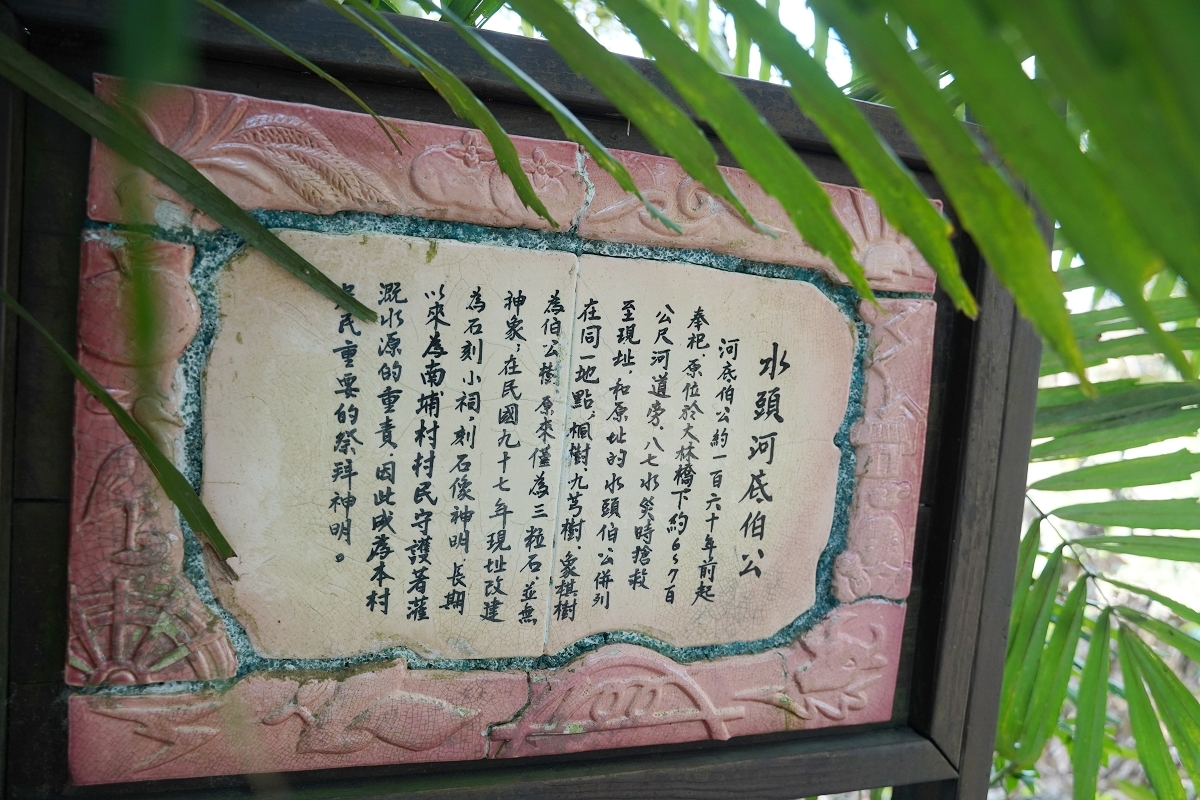 水頭河底伯公
河底伯公約一百六十年前起
奉祀，原位於大林橋下約6、7百
公尺河道旁，八七水災時搶救
至現址，和原址的水頭伯公併列
在同一地點，楓樹、九芎樹、象棋樹
為伯公樹，原來僅為三粒石，並無
神象，在民國九十七年現址改建
為石刻小祠，刻石像神明，長期
以來為南埔村村民守護著灌
溉水源的重責，因此成為本村
民重要的祭拜神明。